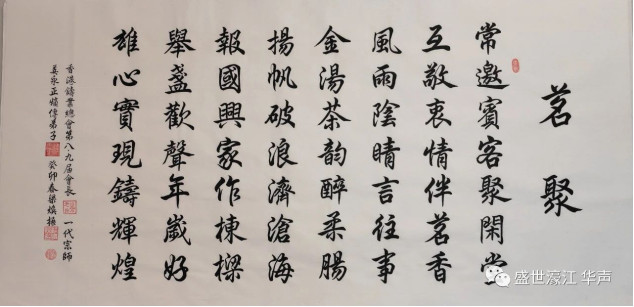 茗聚
常邀賓客聚閑堂
互敬衷情伴茗香
風雨陰晴言往事
金湯茶韵醉柔腸
揚帆破浪濟滄海
報國興家作棟樑
舉盞歡聲年歲好
雄心實現鑄輝煌
香港鑄業總會第八九屆會長 一代宗師
姜永正嫡傳弟子 癸卯春梁煥
盛世濠江 华声